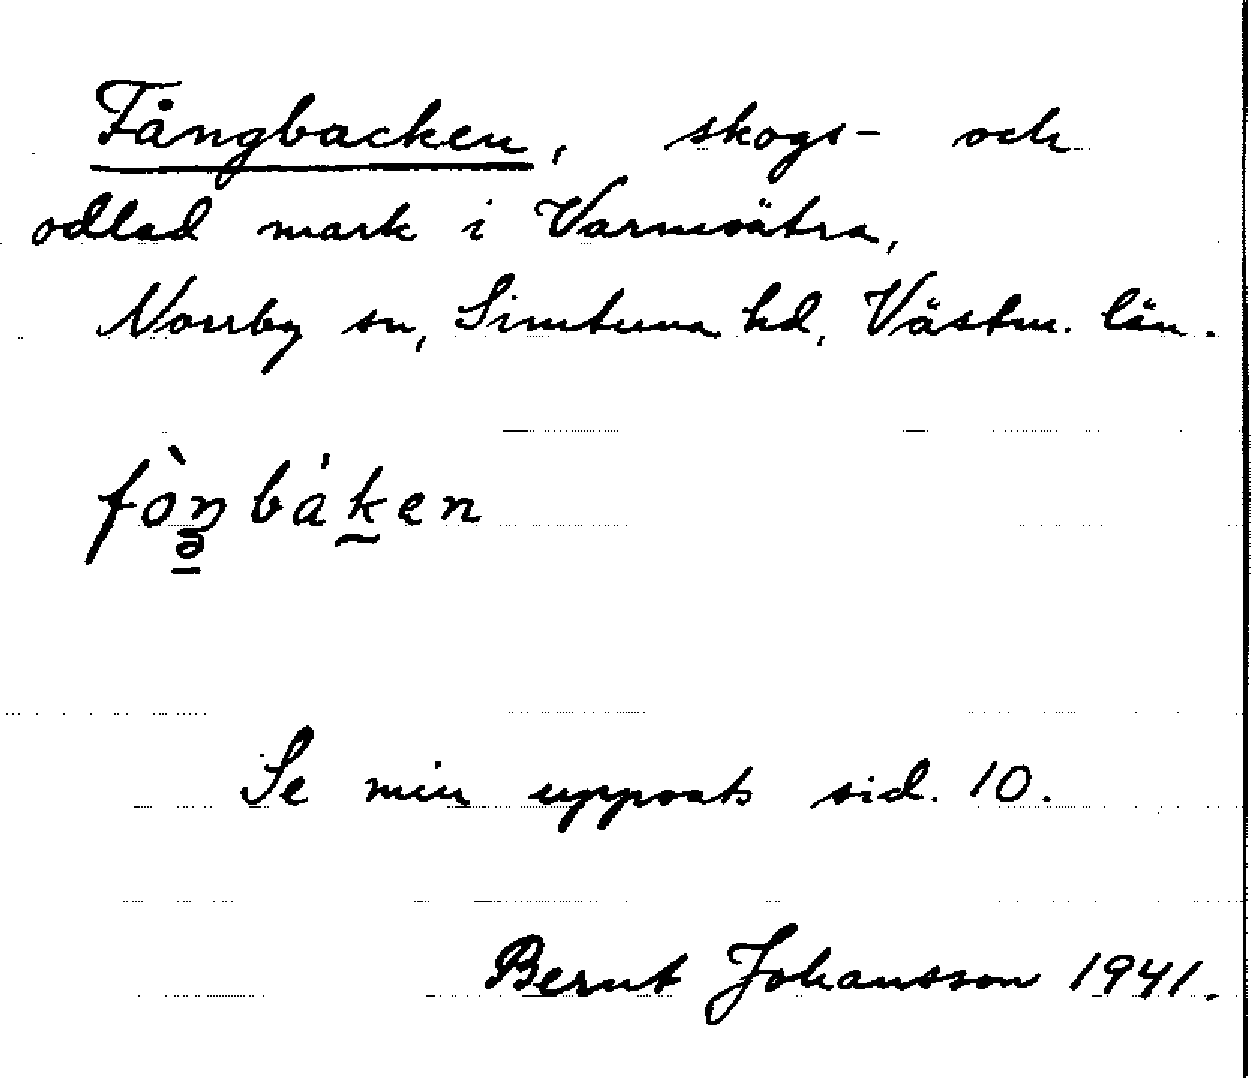 Fångbacken, skogs- och
odlad mark i Varmsätra,
Norrby sn, Simtuna hd, Västm. län.
fòŋbák̰en
Se min uppsats sid. 10.
Bernt Johansson 1941.